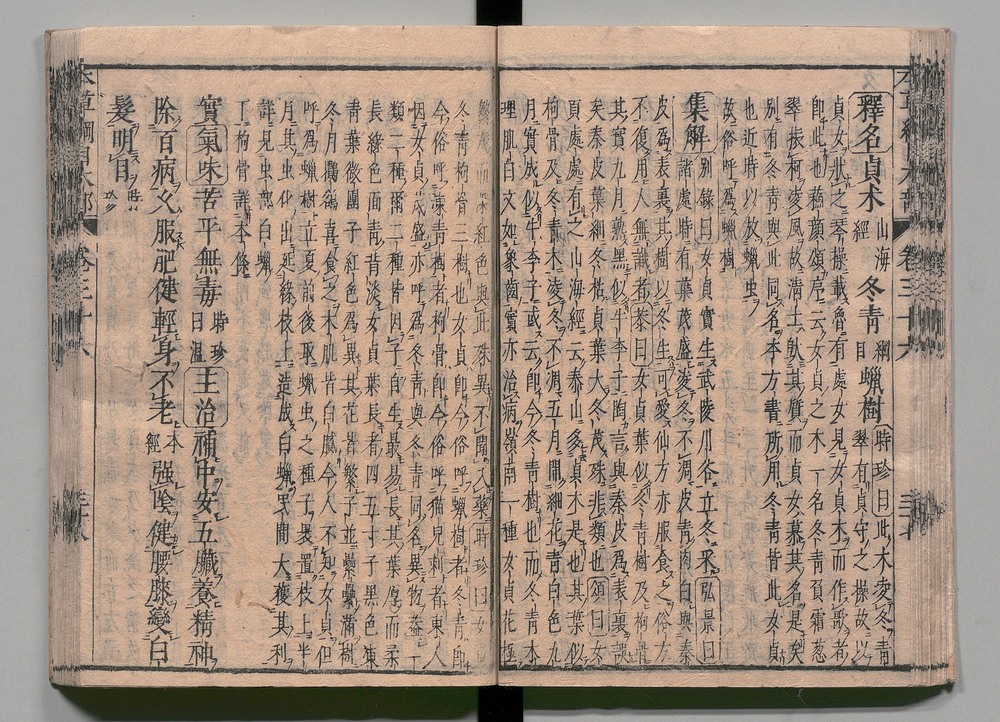 釋名貞木山海經冬青綱目蠟樹時珍曰此木凌冬青翠有貞守之操故以
貞女狀之琴操載魯有處女見女貞木而作歌者
即此也蘇顔頌序云女貞之木一名冬青負霜葱
翠振柯凌風故清士欽其質而貞女慕其名是矣
别有冬青與此同名本方書所用冬青皆此女貞
也近時以放蠟虫
故俗呼爲蠟樹
集解别錄曰女貞實生武陵川谷立冬采弘景曰諸處時有葉茂盛凌冬不凋皮青肉白與秦
皮爲表裏其樹以冬生可愛仙方亦服食之俗方
不復用人無識者恭曰女貞葉似冬青樹及枸骨
其實九月熟黑似牛李子陶言與秦皮爲表裏誤
矣秦皮葉細冬枯女貞葉大冬茂殊非類也頌曰女
貞處處有之山海經云泰山多貞木是也其葉似
枸骨及冬青木凌冬不凋五月開細花青白色九
月實成似牛李子或云即今冬青樹也而冬青木
理肌白文如象齒實亦治病嶺南一種女貞花極
繁茂而深紅色與此殊異不聞入藥時珍曰女貞
冬青枸骨三樹也女貞即今俗呼蠟樹者冬青即
今俗呼凍青樹者枸骨即今俗呼猫兒刺者東人
因女貞茂盛亦呼爲冬青與冬青同名異物盖一
類二種爾二種皆因子自生最易長其葉厚而柔
長綠色面青背淡女貞葉長者四五寸子黑色凍
青葉微團子紅色爲異其花皆繁子並纍纍滿樹
冬月鸜鵒喜食之木肌皆白膩今人不知女貞但
呼爲蠟樹立夏前後取蠟虫之種子裹置枝上半
月其虫化出延緣枝上造成白蠟民間大獲其利
詳見虫部白蠟
下枸骨詳本條
實氣味苦平無毒時珍曰温主治補中安五臟養精神
除百病久服肥健輕身不老本經强陰健腰膝變白
髮明目時珍